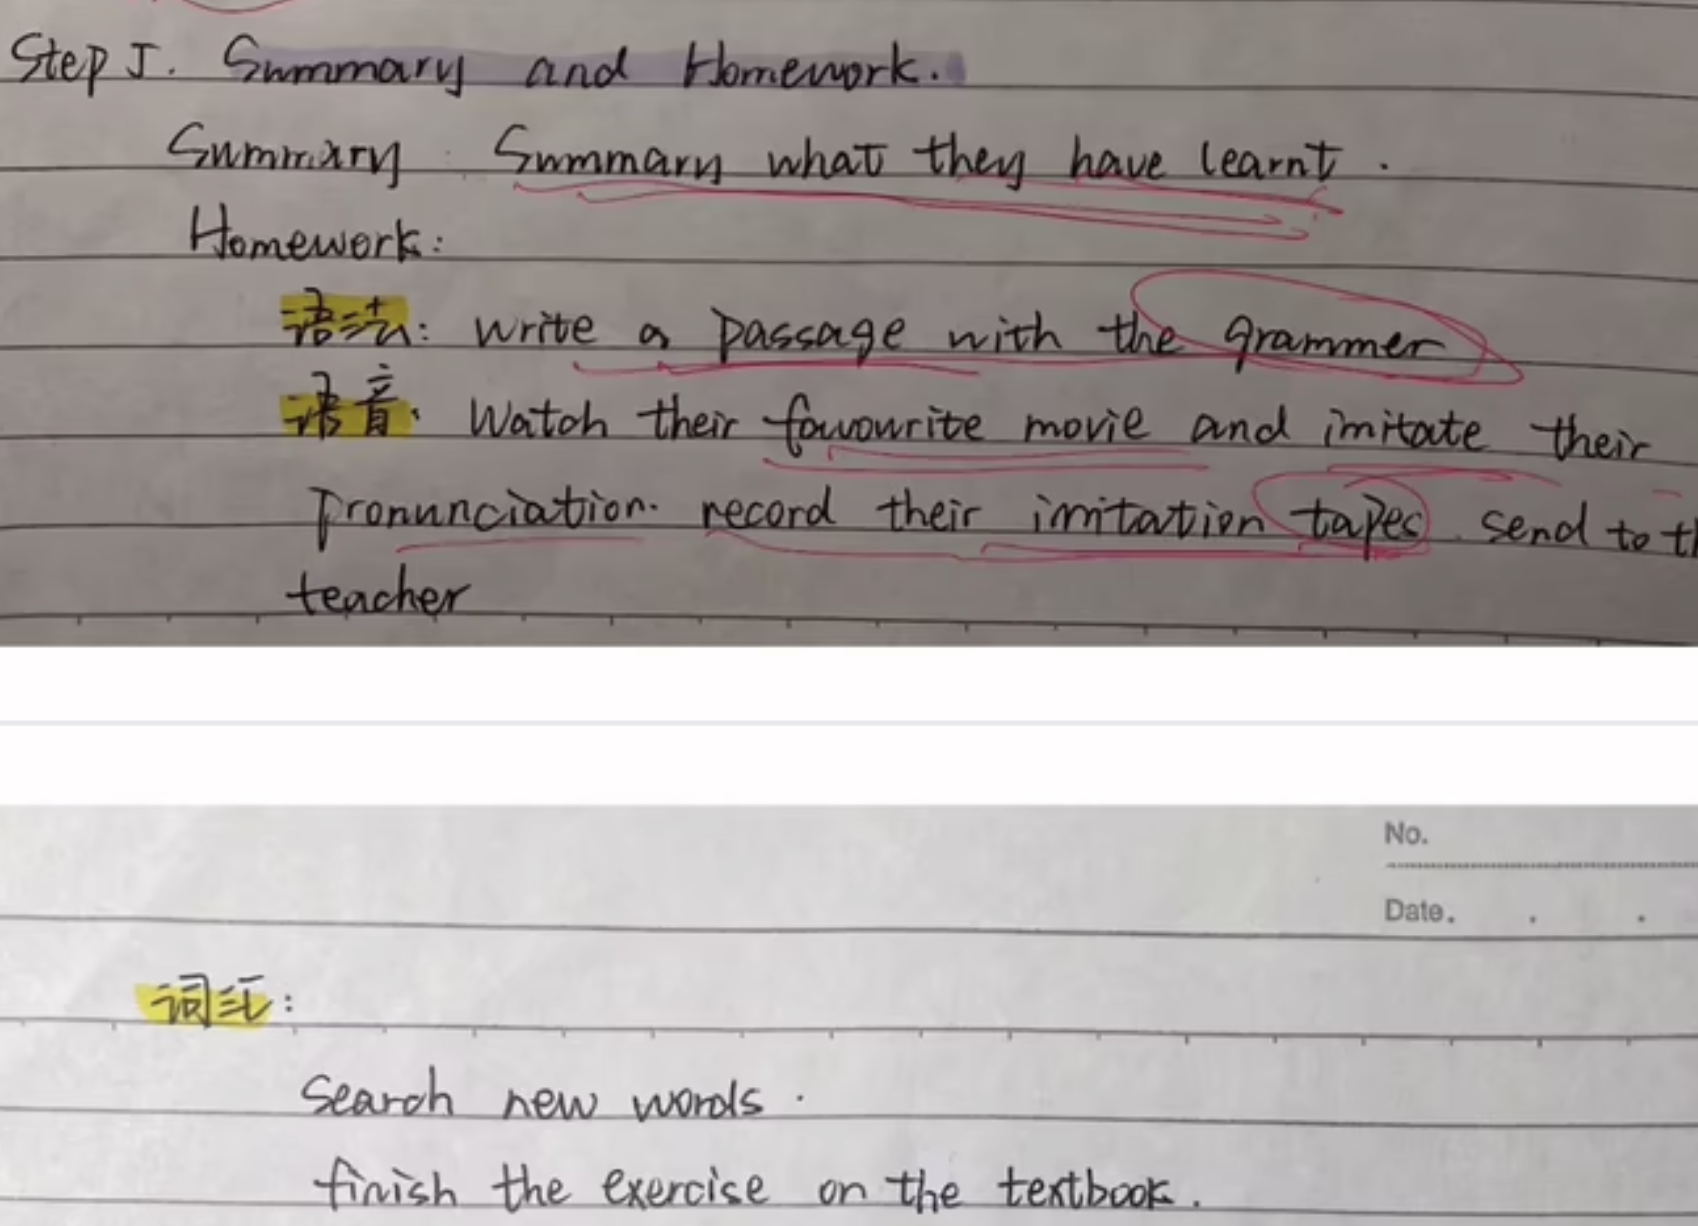 Step 5. Summary and Homework.
Summary: Summary what they have learnt.
Homework:
语法: write a passage with the grammer
语音: Watch their favourite movie and imitate their
pronunciation. record their imitation tapes. send to th
teacher
No.
Date.
词汇:
Search new words.
finish the exercise on the textbook.